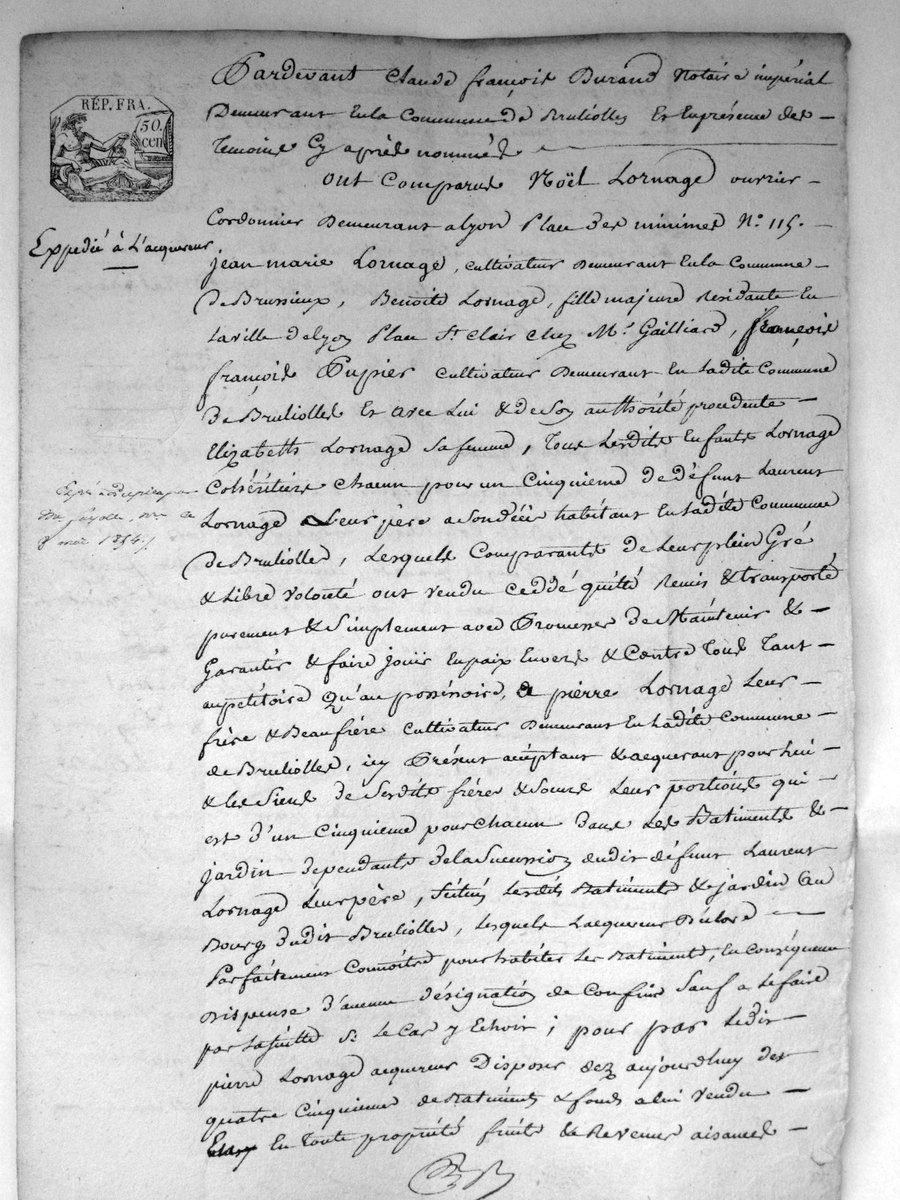 RÉP. FRA.
50.
cen
Pardevant Claude françois Durand Notaire impérial
Demeurant En la Commune de Brulioles Et En présence des
Temoins Cy après nommés
Ont Comparus Noël Lornage ouvrier
Cordonnier Demeurant a lyon Place des minimes N.° 115.
Expedié à L'acquereur
jean marie Lornage, cultivateur Demeurant En la Commune
de Brussieux, Benoite Lornage, fille majeure Residante En
La ville de lyon Place St Clair chez Mr. Gailliard, françois
françois Pupier cultivateur Demeurant En Ladite Commune
de Bruliolles Et avec Lui & de Son authorité procedente
Elizabeth Lornage Sa femme, Tous Lesdits Enfants Lornage
Cohéritiers Chacun pour un Cinquième de défunt Laurent
Lornage Leur père a Son décès habitant En Ladite Commune
de Bruliolles, Lesquels Comparants de Leur plein Gré
& Libre volonté ont vendu Ceddé quitté Remis & transporté
purement & Simplement avec Promesses de Maintenir &
Garantir & faire jouir En paix Envers & Contre Tous Tant
au petitoire Qu'au possessoire, a pierre Lornage Leur
frère & Beaufrère cultivateur Demeurant En Ladite Commune
de Bruliolles, icy Présent acceptant & acquerant pour Lui
& les Siens de Sesdits frères & Sœurs Leurs portions qui
est d'un Cinquième pour chacun dans Les Batiments &
jardin dependants de la Succession dudit défunt Laurent
Lornage Leur père, Situés Lesdits Batiments & jardin au
Bourg dudit Bruliolles, Lesquels L'acquereur Déclare
Parfaitement Connoitre pour habiter Les Batiments, En Conséquence
Dispense d'aucune désignation de Confins Sauf a Le faire
par La Suitte Si Le Cas y Echoir ; pour par Ledit
pierre Lornage acquereur Disposer dez aujourdhuy des
quatre Cinquiemes des Batiments & fonds a lui vendu
En Toute propriété fruits & Revenus aisances